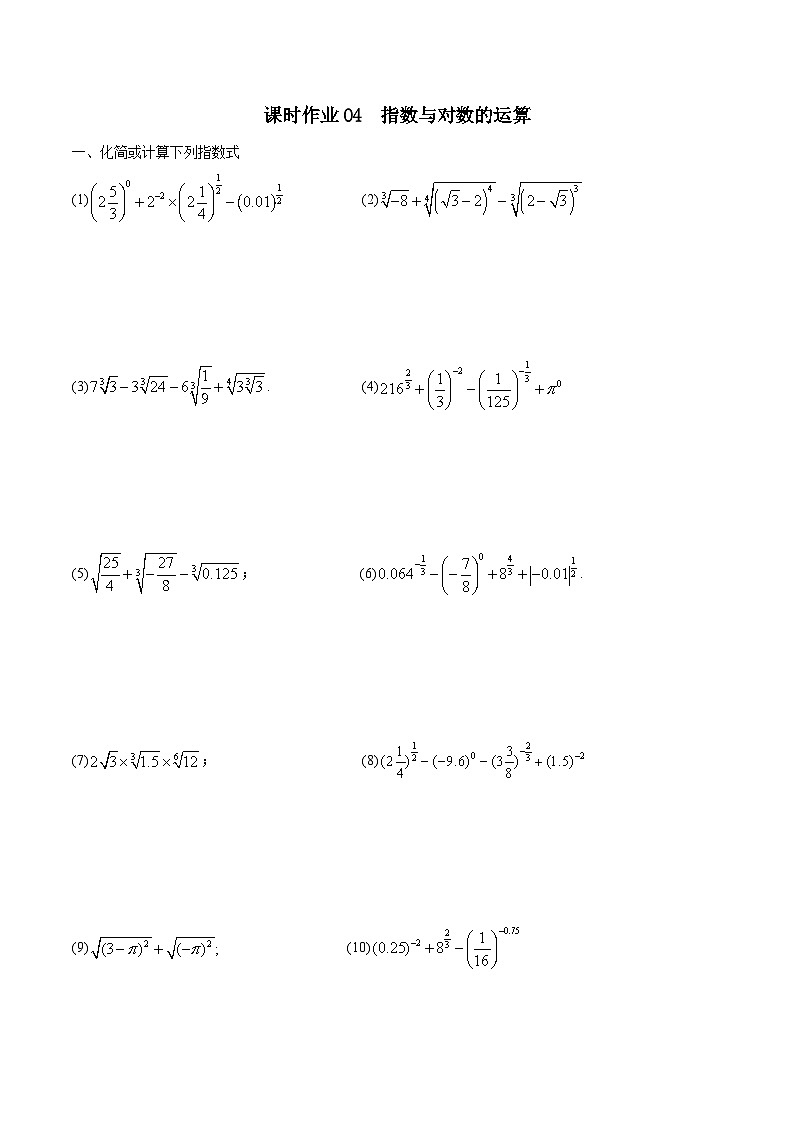 课时作业04 指数与对数的运算
一、化简或计算下列指数式
(1) $\left(2\frac{5}{3}\right)^{0}+2^{-2}\times\left(2\frac{1}{4}\right)^{\frac{1}{2}}-(0.01)^{\frac{1}{2}}$ (2) $\sqrt[3]{-8}+\sqrt[4]{\left(\sqrt{3}-2\right)^{4}}-\sqrt[3]{\left(2-\sqrt{3}\right)^{3}}$
(3) $7\sqrt[3]{3}-3\sqrt[3]{24}-6\sqrt[3]{\frac{1}{9}}+\sqrt[4]{3\sqrt[3]{3}}$ . (4) $216^{\frac{2}{3}}+\left(\frac{1}{3}\right)^{-2}-\left(\frac{1}{125}\right)^{-\frac{1}{3}}+\pi^{0}$
(5) $\sqrt{\frac{25}{4}}+\sqrt[3]{-\frac{27}{8}}-\sqrt[3]{0.125}$ ； (6) $0.064^{-\frac{1}{3}}-\left(-\frac{7}{8}\right)^{0}+8^{\frac{4}{3}}+\left|-0.01\right|^{\frac{1}{2}}$ .
(7) $2\sqrt{3}\times\sqrt[3]{1.5}\times\sqrt[6]{12}$ ； (8) $(2\frac{1}{4})^{\frac{1}{2}}-(-9.6)^{0}-(3\frac{3}{8})^{-\frac{2}{3}}+(1.5)^{-2}$
(9) $\sqrt{(3-\pi)^{2}}+\sqrt{(-\pi)^{2}}$ ; (10) $(0.25)^{-2}+8^{\frac{2}{3}}-\left(\frac{1}{16}\right)^{-0.75}$